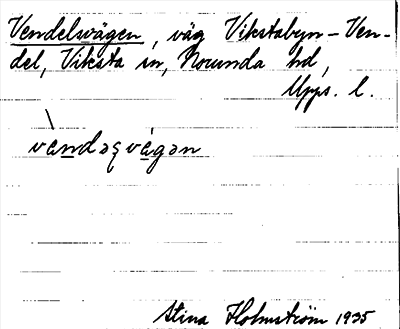 Vendelsvägen, väg Vikstabyn-Ven-
del, Viksta sn, Norunda hd,
Upps. l.
vändəʂvägən
Stina Holmström 1935